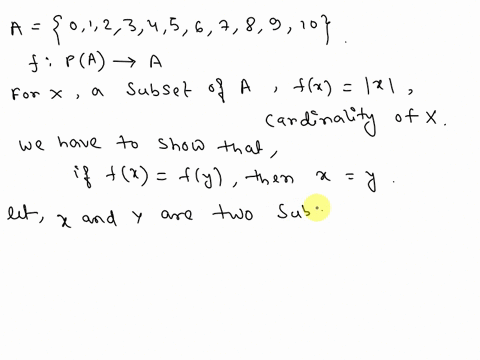 A = {0,1,2,3,4,5,6,7,8,9,10}.
f: P(A) → A
For x, a subset of A, f(x) = |x|,
Cardinality of X.
we have to show that,
if f(x) = f(y), then x = y.
let, x and y are two Sub